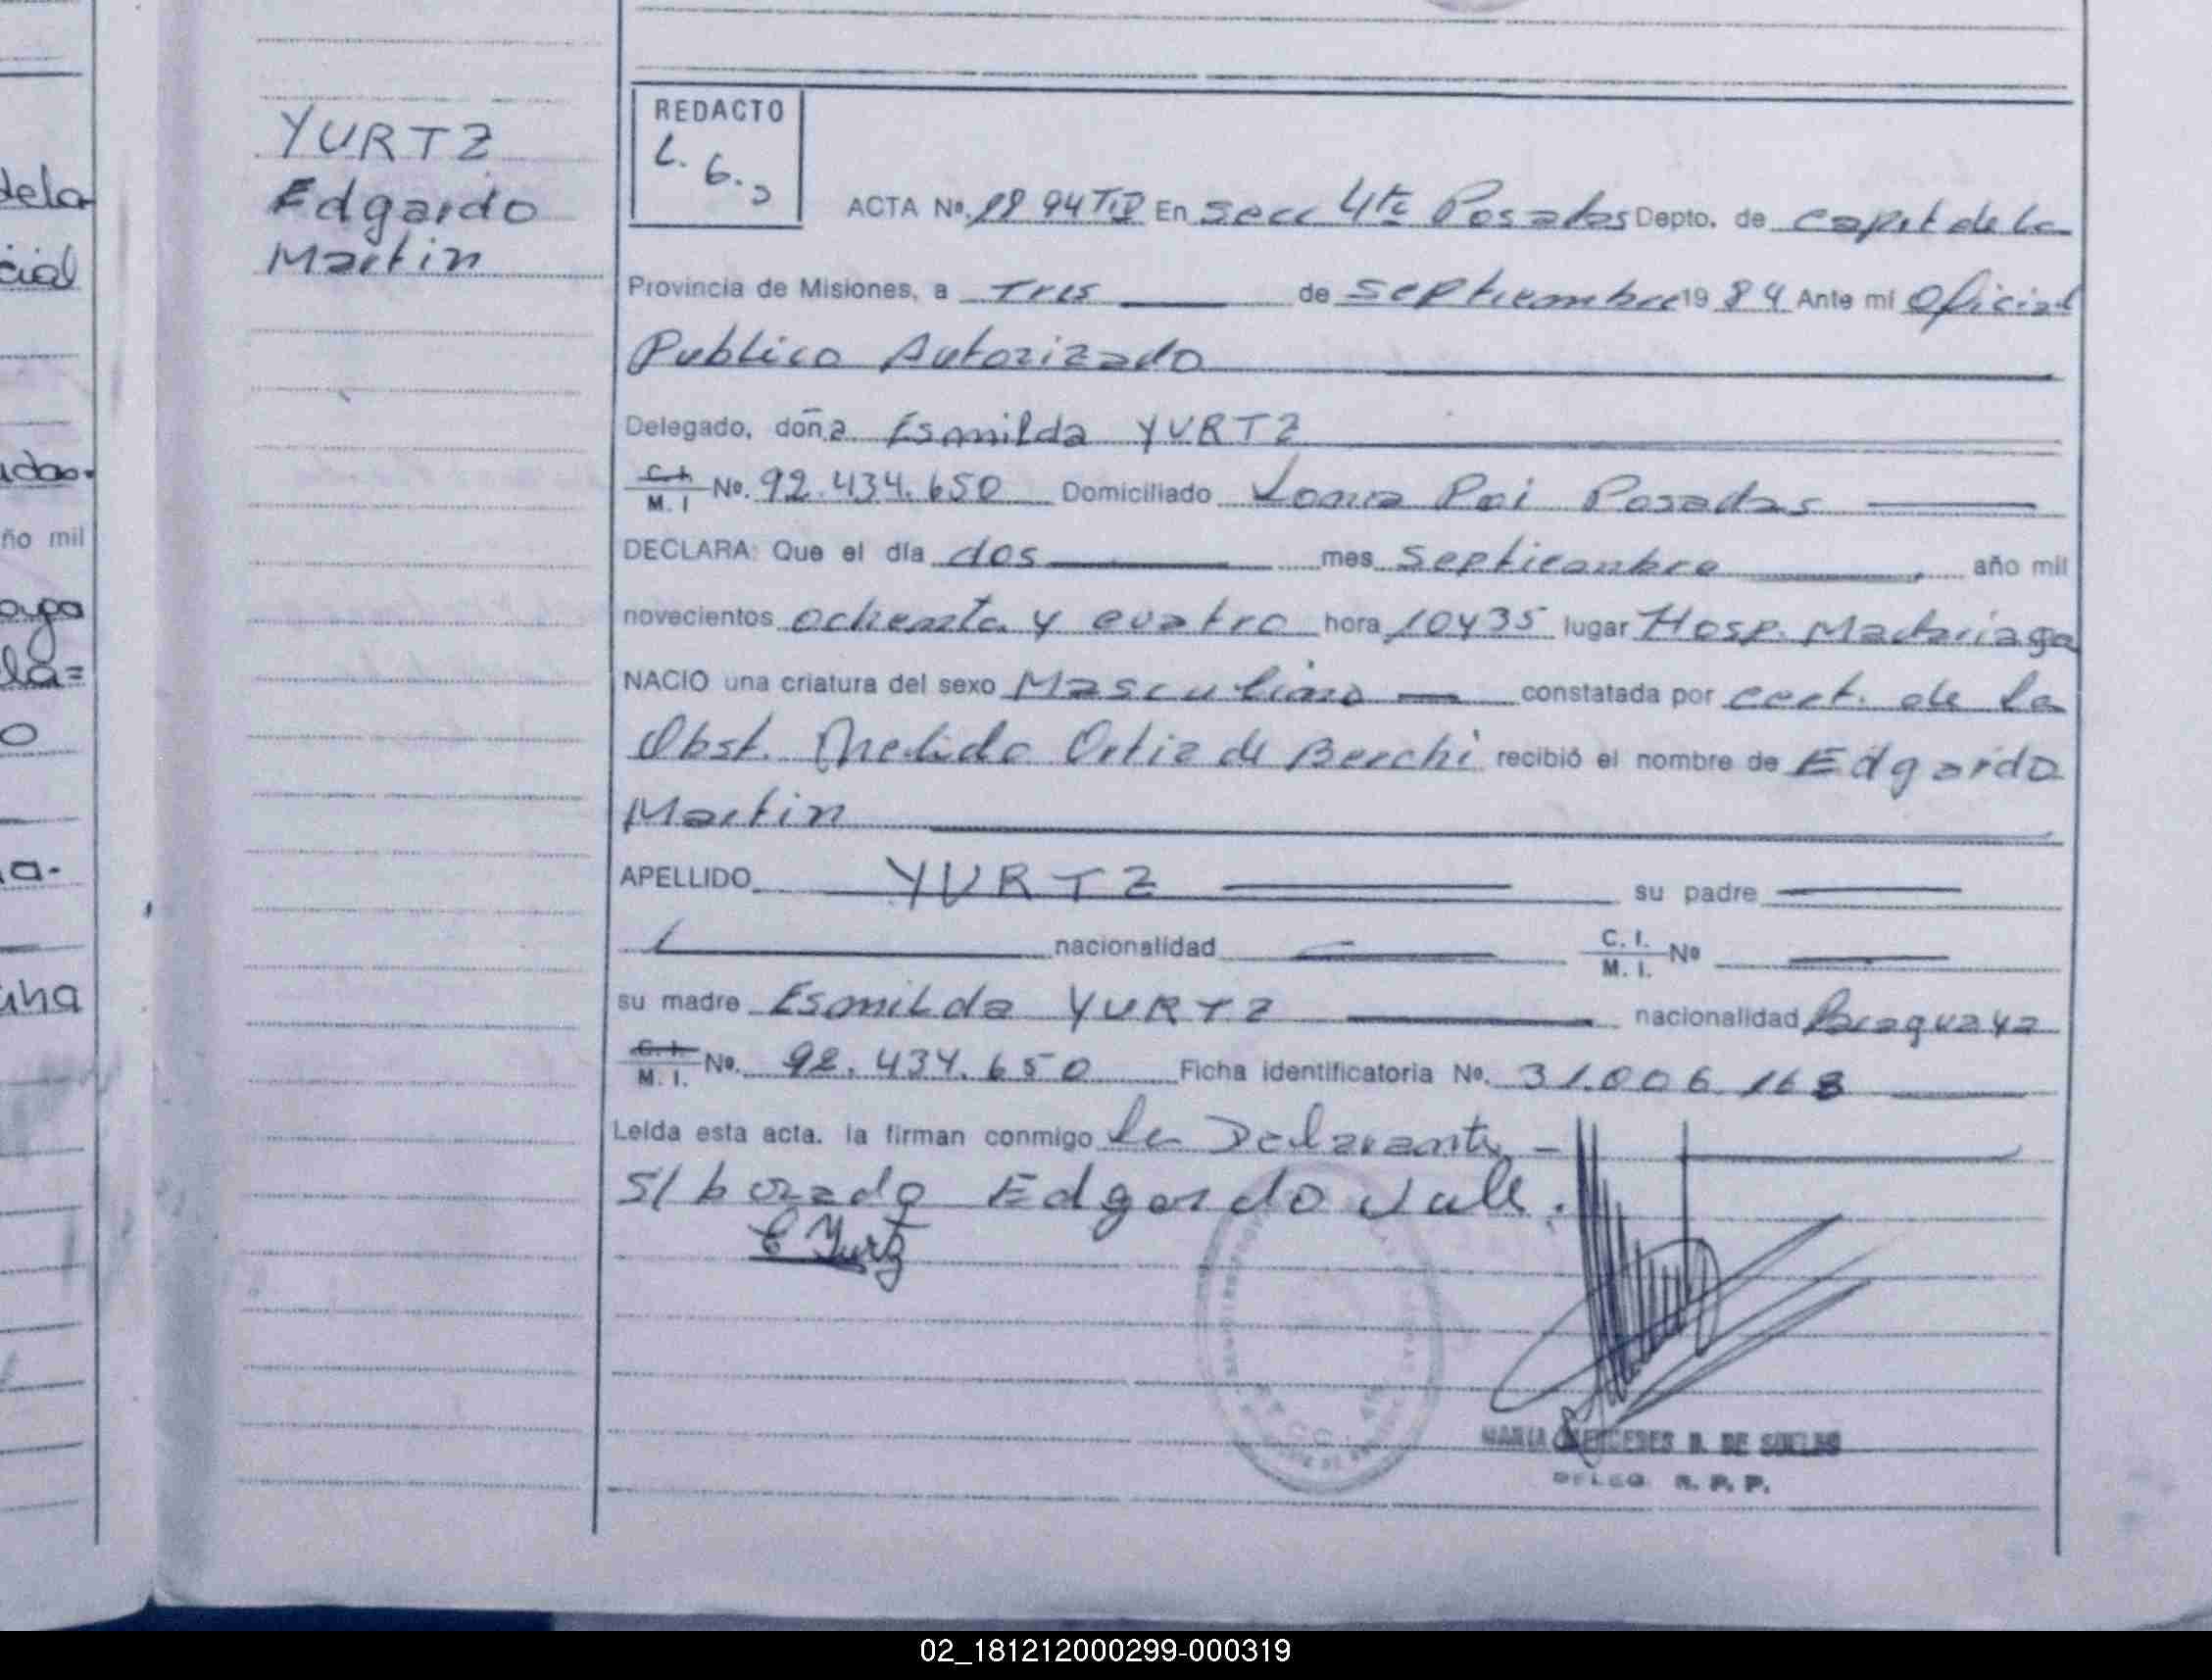 YURTZ
Edgardo
Martin
REDACTO
L. G.
ACTA Nº 1894 TIV En Secc 4ta Posadas Depto. de Capit de la
Provincia de Misiones, a Tres de Septiembre 19 84 Ante mi Oficial
Publico Autorizado
Delegado, doña Esmilda YURTZ
C. I. M. I Nº. 92.434.650 Domiciliado Loma Poi Posadas
DECLARA: Que el día dos mes Septiembre año mil
novecientos ochenta y cuatro hora 10y35 lugar Hosp. Madariaga
NACIO una criatura del sexo Masculino constatada por cert. de la
Obst. Ortiz de Berchi recibió el nombre de Edgardo
Martin
APELLIDO YURTZ su padre
nacionalidad C. I. M. I. Nº
su madre Esmilda YURTZ nacionalidad Paraguaya
C. I. M. I. Nº. 92.434.650 Ficha identificatoria Nº. 31.006.168
Leida esta acta. la firman conmigo la Declarante,-
S/ borado Edgardo Vale.
E Yurtz
MARIA MERCEDES B. DE SUELDO
DELEG. R. P. P.
dela
cial
udas.
ño mil
la=
o
a.
una
02_181212000299-000319